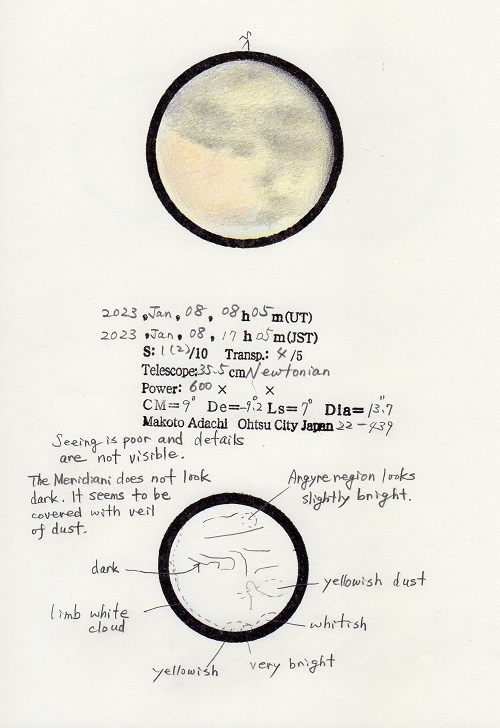 2023, Jan, 08, 08h05m(UT)
2023, Jan, 08, 17h05m(JST)
S: 1(2)/10 Transp.: 4/5
Telescope: 35.5cm Newtonian
Power: 600 × ×
CM=9° De=-9.2 Ls=7° Dia=13".7
Makoto Adachi Ohtsu City Japan 22-439
Seeing is poor and details
are not visible.
The Meridiani does not look
dark. It seems to be
covered with veil
of dust.
Argyre region looks
slightly bright.
dark
yellowish dust
limb white
cloud
whitish
yellowish
very bright